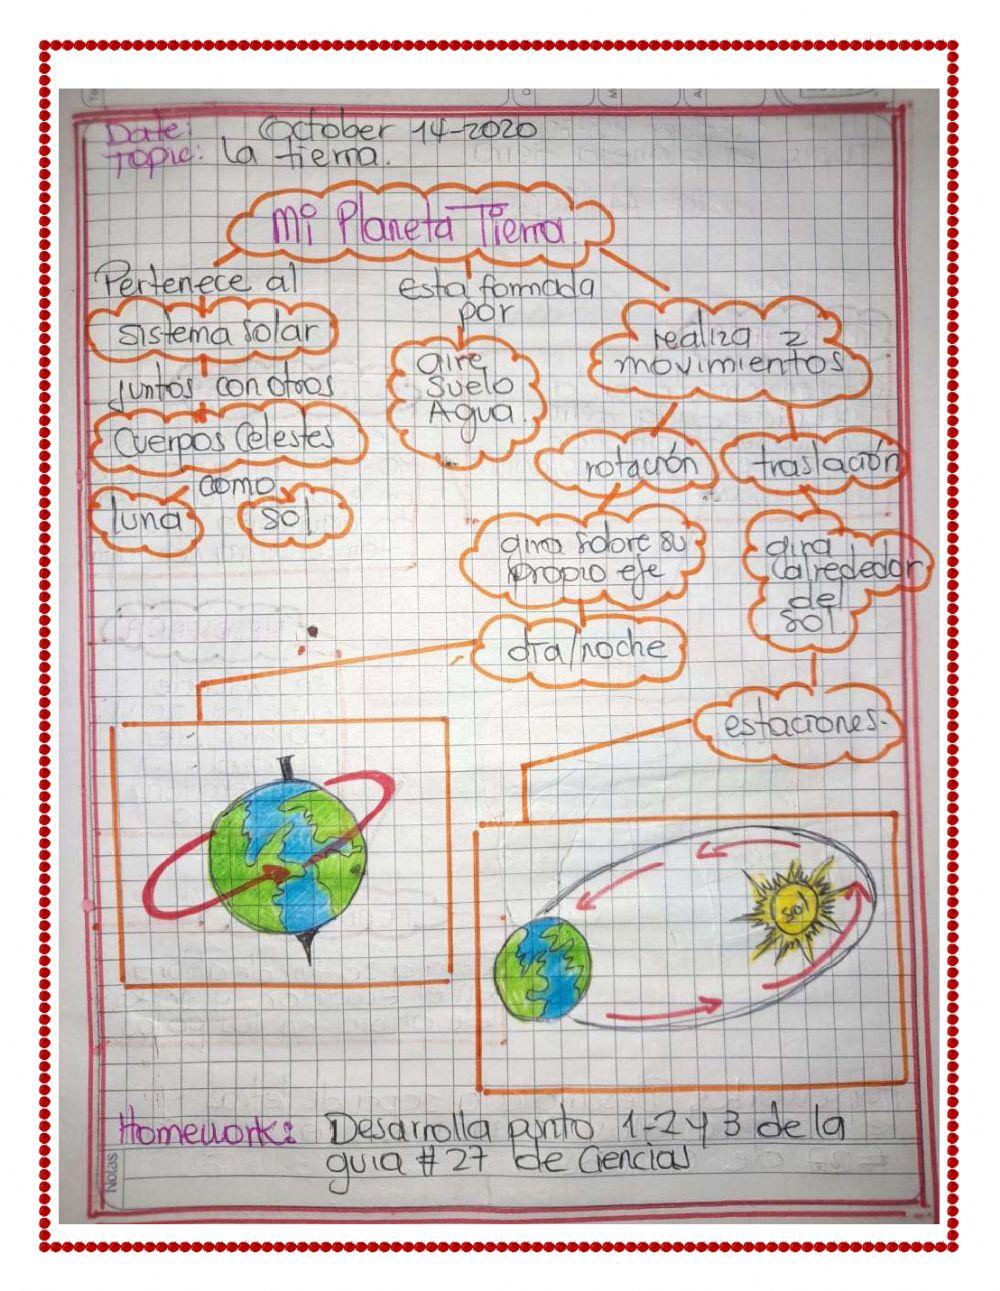 Date: October 14-2020
Topic: La tierra.
Mi Planeta Tierra
Pertenece al
sistema solar
juntos con otros
Cuerpos Celestes
como
luna
sol
esta formada
por
aire
suelo
Agua.
realiza 2
movimientos
rotación
traslación
gira sobre su
propio eje
dia/noche
gira
alrededor
del
sol
estaciones.
sol
Homework: Desarrolla punto 1-2 y 3 de la
guia # 27 de Ciencias
Notas